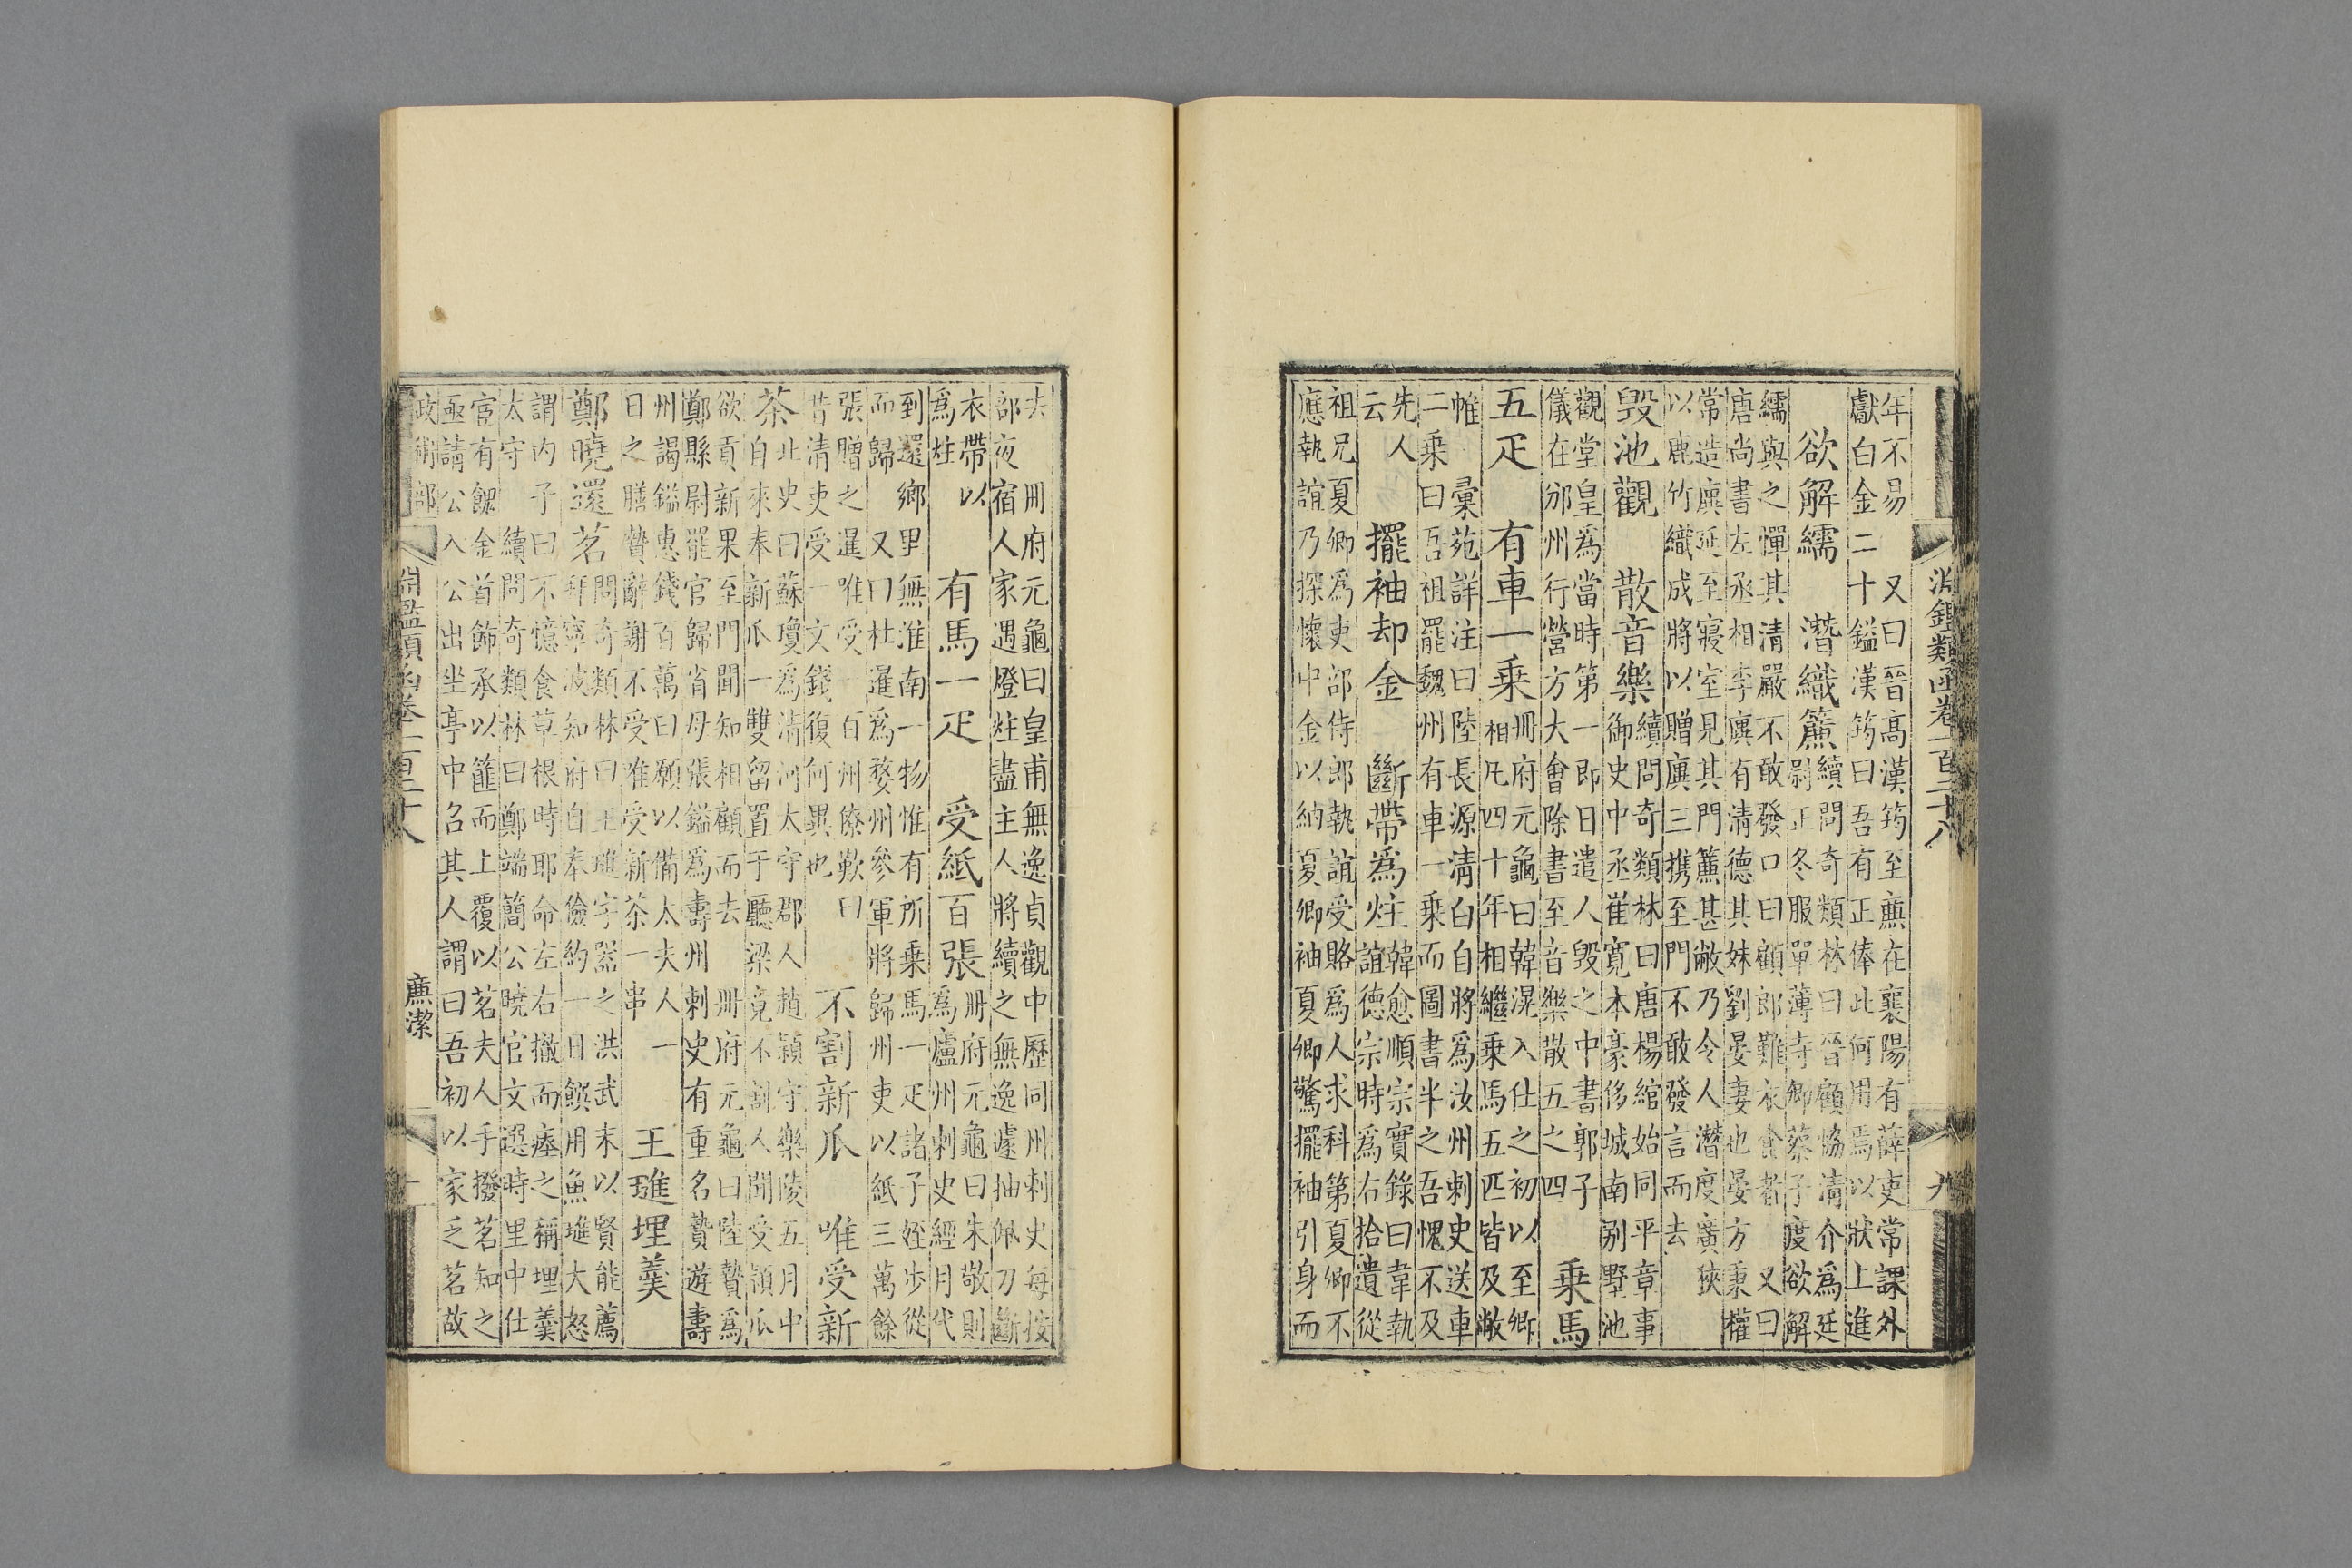 淵鑑類函卷一百二十八 九
年不易　又曰晉髙漢筠至㢘在襄陽有薛吏常課外
獻白金二十鎰漢筠曰吾有正俸此何用焉以狀上進
欲解繻　潛織簾
續問奇類林曰晉顧協清介為廷
尉正冬服單薄寺卿蔡子度欲解
繻與之憚其清嚴不敢發口曰顧郎難衣食者　又曰
唐尚書左丞相李廙有清德其妹劉晏妻也晏方秉權
常造廙延至寢室見其門簾甚敝乃令人潛度廣狹
以麄竹織成將以贈廙三携至門不敢發言而去
毀池觀　散音樂
續問奇類林曰唐楊綰始同平章事
御史中丞崔寛本豪侈城南别墅池
觀堂皇爲當時第一即日遣人毀之中書郭子
儀在邠州行營方大會除書至音樂散五之四
乗馬
五疋　有車一乗
冊府元龜曰韓滉入仕之初以至卿
相凡四十年相繼乗馬五匹皆及敝
帷　彚苑詳注曰陸長源清白自將爲汝州刺史送車
二乗曰吾祖罷魏州有車一乗而圖書半之吾愧不及
先人
云
擺袖却金　斷帶爲炷
韓愈順宗實錄曰韋執
誼德宗時爲右拾遺從
祖兄夏卿爲吏部侍郎執誼受賂爲人求科第夏卿不
應執誼乃探懷中金以納夏卿袖夏卿驚擺袖引身而
去　冊府元龜曰皇甫無逸貞觀中歷同州刺史每按
部夜宿人家遇燈炷盡主人將續之無逸遽抽佩刀斷
衣帶以
爲炷
有馬一疋　受紙百張
冊府元龜曰朱敬則
爲廬州刺史經月代
到還鄉里無淮南一物惟有所乗馬一疋諸子姪步從
而歸　又曰杜暹爲婺州參軍將歸州吏以紙三萬餘
張贈之暹唯受一百州僚歎曰
昔清吏受一文錢復何異也
不割新瓜　唯受新
茶
北史曰蘇瓊爲清河太守郡人趙潁守樂陵五月中
自來奉新瓜一雙留置于聽梁竟不割人聞受潁瓜
欲貢新果至門聞知相顧而去　冊府元龜曰陸贄爲
鄭縣尉罷官歸省母張鎰爲壽州刺史有重名贄遊壽
州謁鎰惠錢百萬曰願以備太夫人一
日之膳贄辭謝不受唯受新茶一串
王璡埋羮
鄭曉還茗
問奇類林曰王璡字器之洪武末以賢能薦
拜寧波知府自奉儉約一日饌用魚璡大怒
謂内子曰不憶食草根時耶命左右撤而瘞之稱埋羮
太守　續問奇類林曰鄭端簡公曉官文選時里中仕
宦有餽金首飾承以篚而上覆以茗夫人手撥茗知之
亟請公入公出坐亭中召其人謂曰吾初以家乏茗故
政術部 淵鑑類函卷一百二十八 㢘潔 十